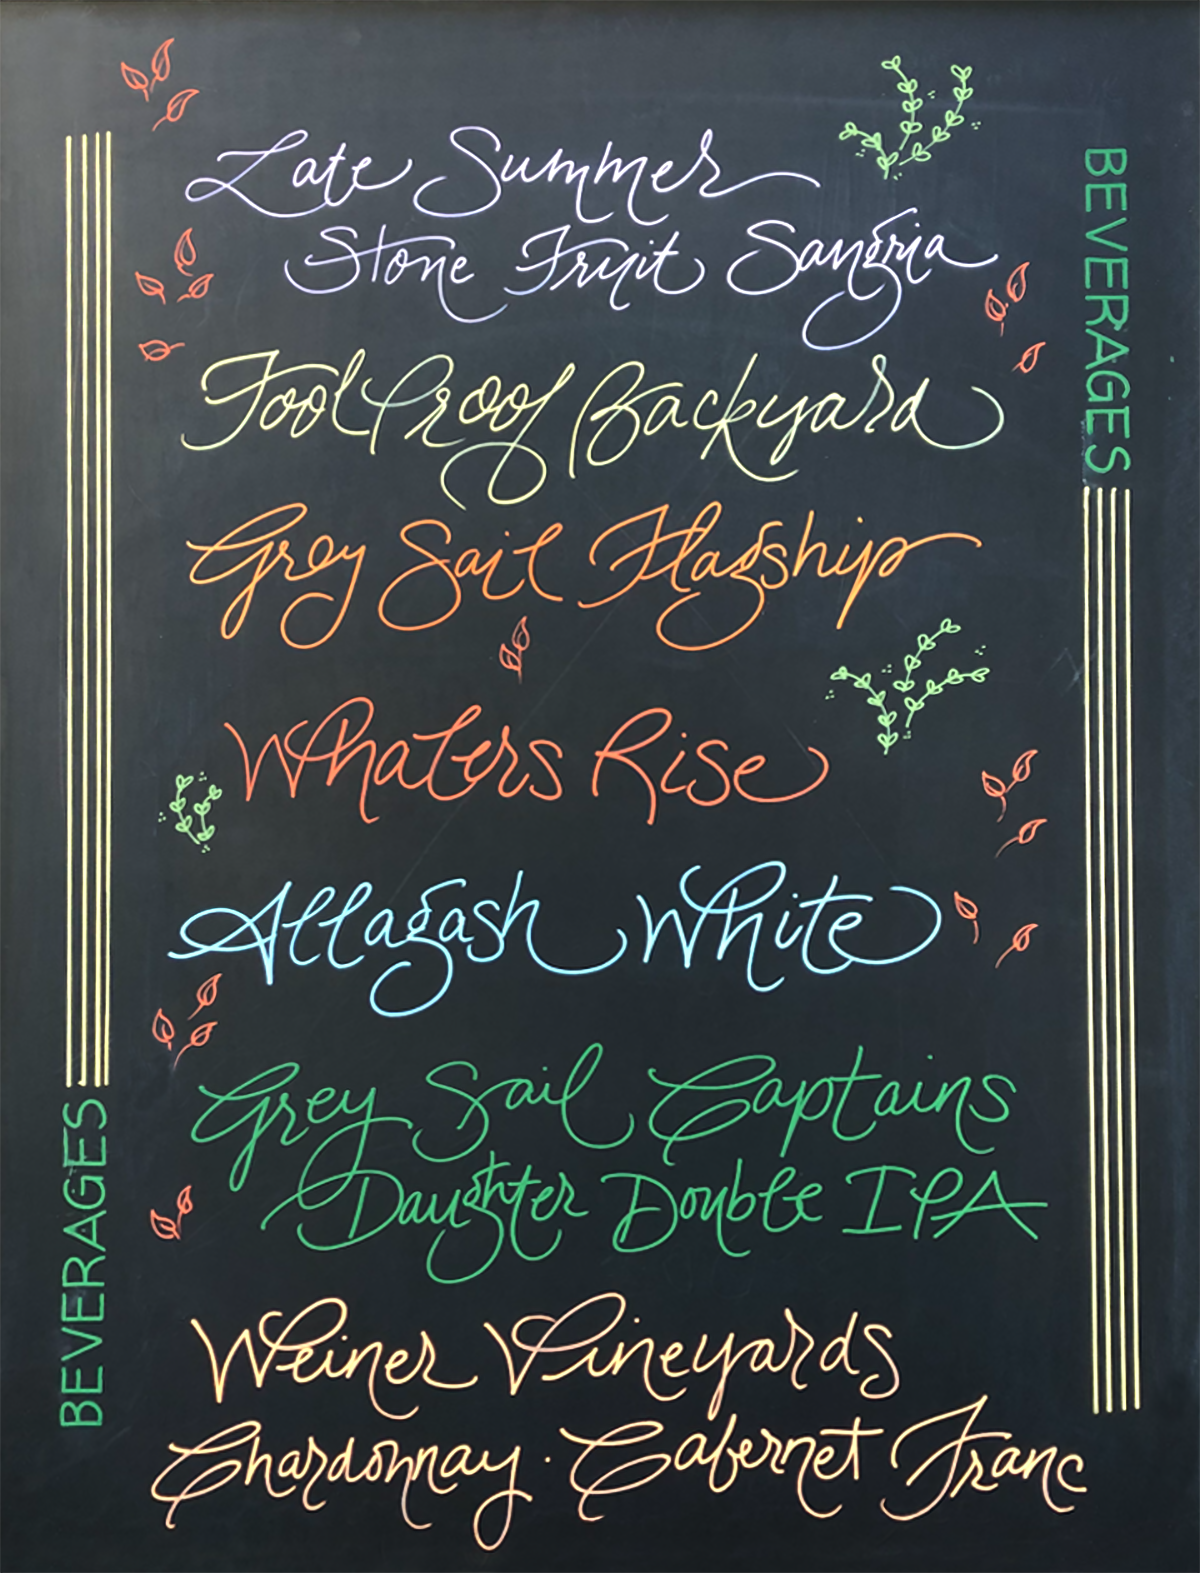 BEVERAGES
Late Summer
Stone Fruit Sangria
FoolProof Backyard
Grey Sail Flagship
Whalers Rise
Allagash White
Grey Sail Captains
Daughter Double IPA
Weiner Vineyards
Chardonnay · Cabernet Franc
BEVERAGES